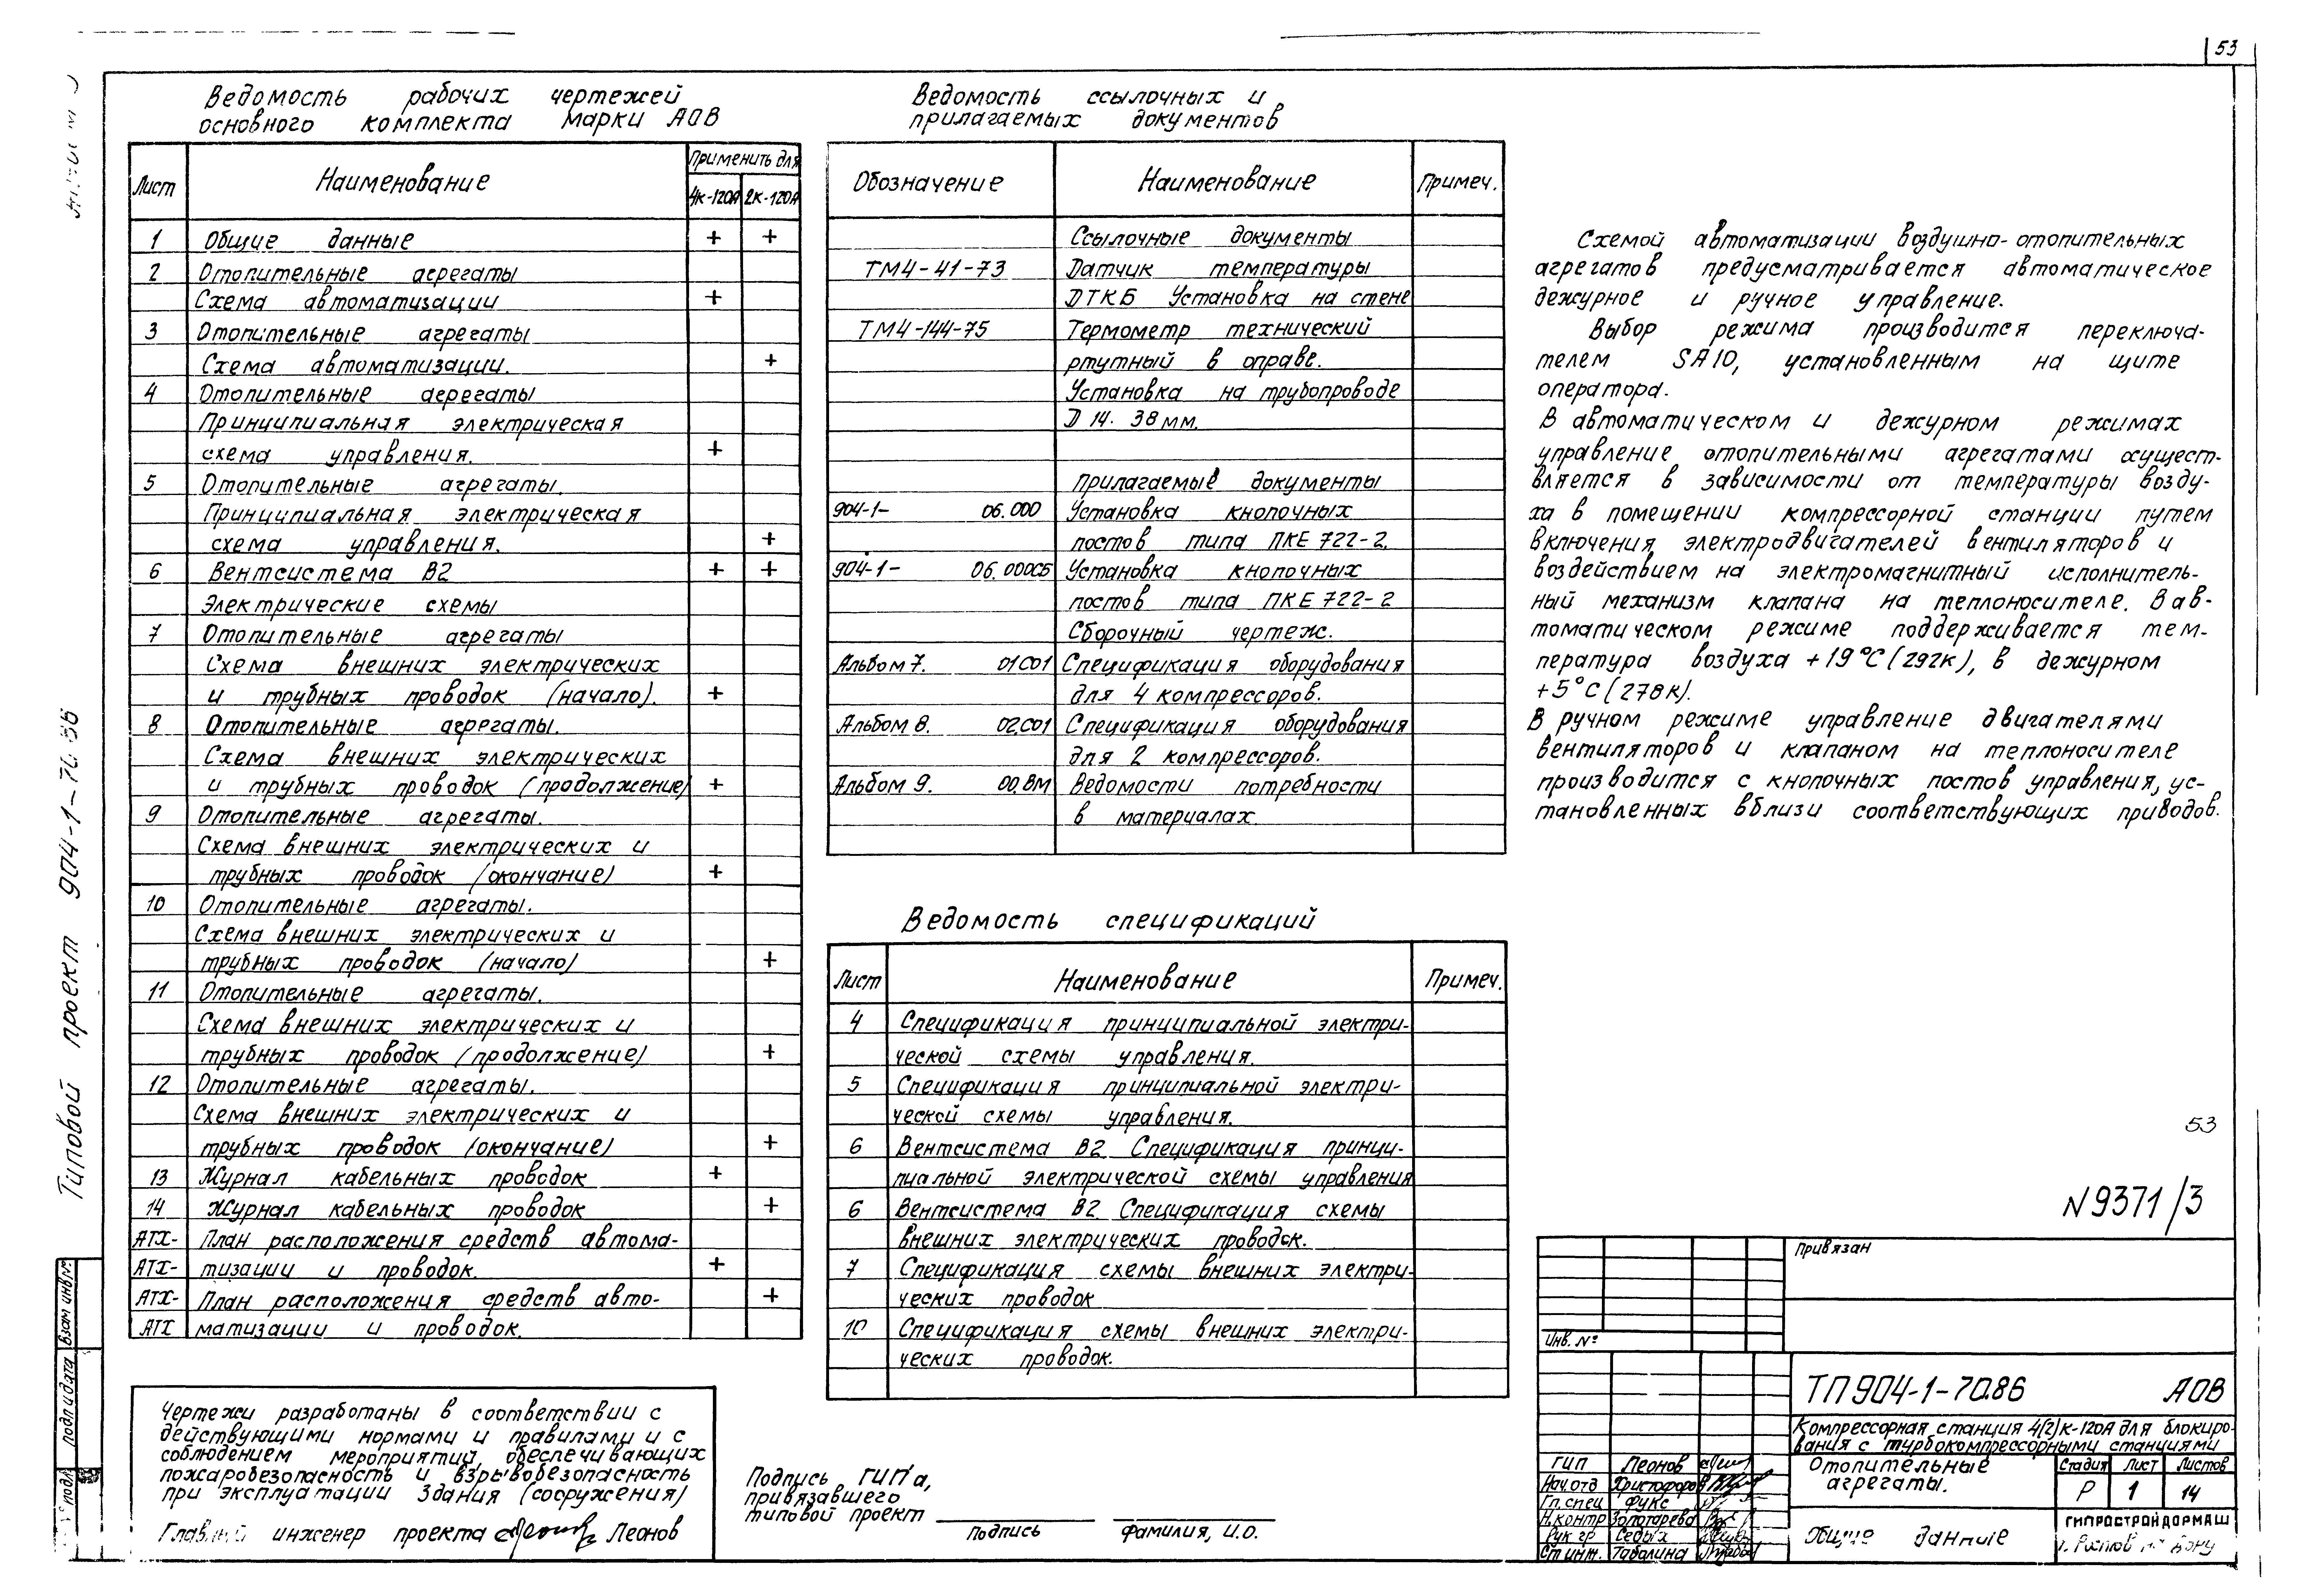 53
Ведомость рабочих чертежей
основного комплекта марки АОВ
Лист
Наименование
Применить для
4К-120А 2К-120А
1 Общие данные + +
2 Отопительные агрегаты
Схема автоматизации +
3 Отопительные агрегаты
Схема автоматизации. +
4 Отопительные агрегаты
Принципиальная электрическая
схема управления. +
5 Отопительные агрегаты.
Принципиальная электрическая
схема управления. +
6 Вентсистема В2 + +
Электрические схемы
7 Отопительные агрегаты
Схема внешних электрических
и трубных проводок (начало). +
8 Отопительные агрегаты.
Схема внешних электрических
и трубных проводок (продолжение) +
9 Отопительные агрегаты.
Схема внешних электрических и
трубных проводок (окончание) +
10 Отопительные агрегаты.
Схема внешних электрических и
трубных проводок (начало) +
11 Отопительные агрегаты.
Схема внешних электрических и
трубных проводок (продолжение) +
12 Отопительные агрегаты.
Схема внешних электрических и
трубных проводок (окончание) +
13 Журнал кабельных проводок +
14 Журнал кабельных проводок +
АТХ- План расположения средств автома-
АТХ- тизации и проводок. +
АТХ- План расположения средств авто- +
АТХ матизации и проводок.
Чертежи разработаны в соответствии с
действующими нормами и правилами и с
соблюдением мероприятий, обеспечивающих
пожаробезопасность и взрывобезопасность
при эксплуатации здания (сооружения)
Главный инженер проекта Леонов
Ведомость ссылочных и
прилагаемых документов
Обозначение Наименование Примеч.
Ссылочные документы
ТМ4-41-73 Датчик температуры
ДТКБ Установка на стене
ТМ4-144-75 Термометр технический
ртутный в оправе.
Установка на трубопроводе
D 14. 38 мм.
Прилагаемые документы
904-1- 06.000 Установка кнопочных
постов типа ПКЕ 722-2.
904-1- 06.000СБ Установка кнопочных
постов типа ПКЕ 722-2
Сборочный чертеж.
Альбом 7. 01СО1 Спецификация оборудования
для 4 компрессоров.
Альбом 8. 02.СО1 Спецификация оборудования
для 2 компрессоров.
Альбом 9. 00.ВМ Ведомости потребности
в материалах
Ведомость спецификаций
Лист Наименование Примеч.
4 Спецификация принципиальной электри-
ческой схемы управления.
5 Спецификация принципиальной электри-
ческой схемы управления.
6 Вентсистема В2 Спецификация принци-
пиальной электрической схемы управления
6 Вентсистема В2 Спецификация схемы
внешних электрических проводок.
7 Спецификация схемы внешних электри-
ческих проводок
10 Спецификация схемы внешних электри-
ческих проводок.
Подпись ГИП'а,
привязавшего
типовой проект
подпись
фамилия, И.О.
Схемой автоматизации воздушно-отопительных
агрегатов предусматривается автоматическое
дежурное и ручное управление.
Выбор режима производится переключа-
телем SA10, установленным на щите
оператора.
В автоматическом и дежурном режимах
управление отопительными агрегатами осущест-
вляется в зависимости от температуры возду-
ха в помещении компрессорной станции путем
включения электродвигателей вентиляторов и
воздействием на электромагнитный исполнитель-
ный механизм клапана на теплоносителе. В ав-
томатическом режиме поддерживается тем-
пература воздуха +19°С (292к), в дежурном
+5°С (278к).
В ручном режиме управление двигателями
вентиляторов и клапаном на теплоносителе
производится с кнопочных постов управления, ус-
тановленных вблизи соответствующих приводов.
53
N 9371/3
Привязан
Инв. №
ТП 904-1-70.86 АОВ
Компрессорная станция 4(2)К-120А для блокиро-
вания с турбокомпрессорными станциями
ГИП Леонов
Нач.отд Христофоров
Гл.спец Фукс
Н.контр Золотарева
Рук гр Седых
Ст инж. Табалина
Отопительные
агрегаты.
Стадия Лист Листов
Р 1 14
Общие данные
ГИПРОСТРОЙДОРМАШ
г. Ростов на Дону
Типовой проект 904-1-70.86
Взам инв №
Подп и дата
подл